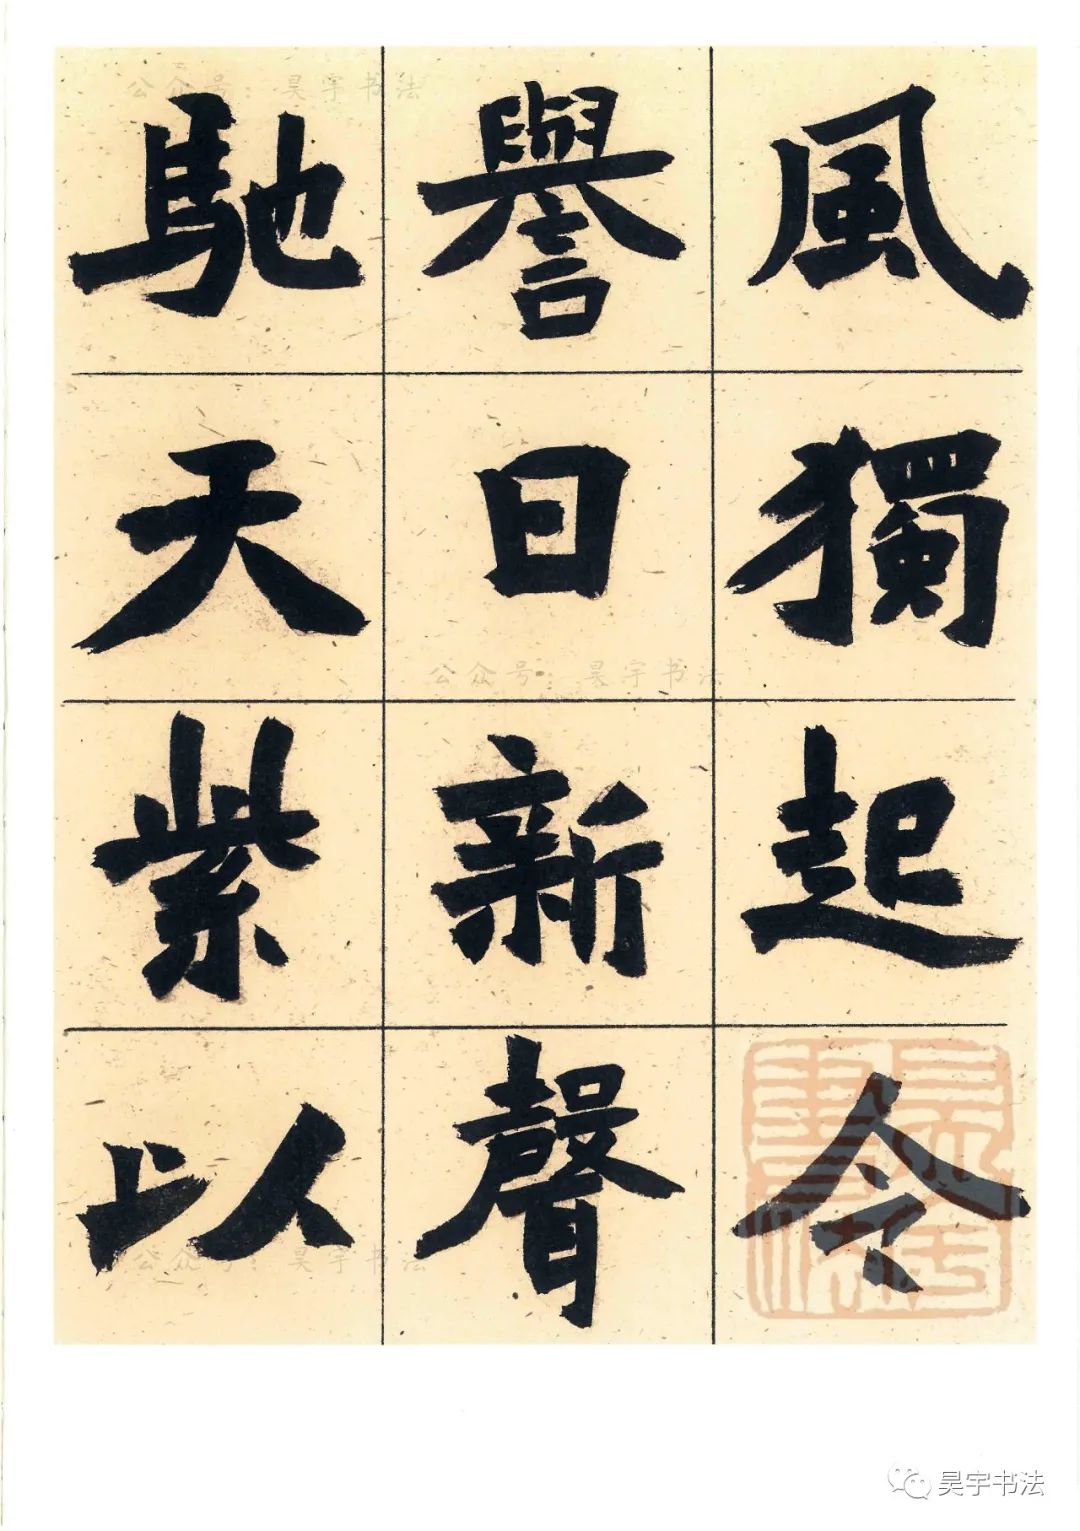 風獨起令
譽日新聲
馳天紫以
公众号：昊宇书法
公众号：昊宇书法
公众号：昊宇书法
昊宇书法